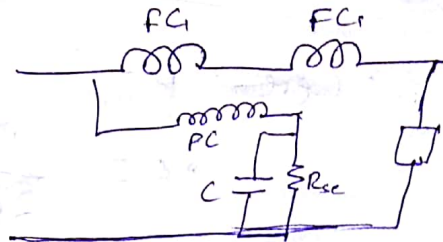 FC1 FC1
PC
C Rse